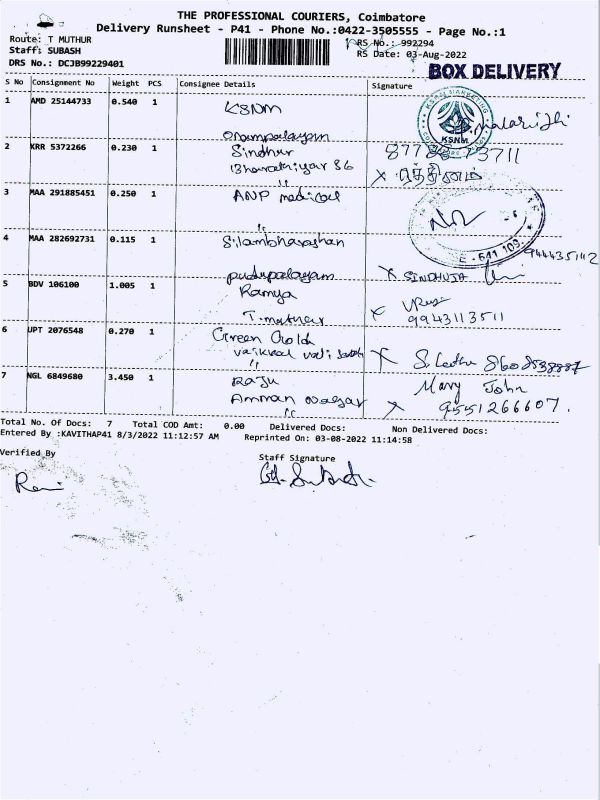 THE PROFESSIONAL COURIERS, Coimbatore
Delivery Runsheet - P41 - Phone No.:0422-3505555 - Page No.:1
Route: T MUTHUR
RS No.: 992294
Staff: SUBASH
RS Date: 03-Aug-2022
DRS No.: DCJB99229401
BOX DELIVERY
S No Consignment No Weight PCS Consignee Details Signature
1 AMD 25144733 0.540 1 KSNM
KSNM MARKETING
KSNM
Onampalayam
2 KRR 5372266 0.230 1 Sindhur
Bharathiyar 86
X ரத்தினம்
3 MAA 291885451 0.250 1 ANP medical
E - 641 109
4 MAA 282692731 0.115 1 Silambharashan
9444435142
pudupalayam X SINDHUJA
5 BDV 106100 1.005 1 Ramya
T. mathur X 9943113511
6 UPT 2076548 0.270 1 Green Gold
X
7 NGL 6849680 3.450 1 Raju Mary John
Amman nagar X 9551266607.
Total No. Of Docs: 7 Total COD Amt: 0.00 Delivered Docs: Non Delivered Docs:
Entered By :KAVITHAP41 8/3/2022 11:12:57 AM Reprinted On: 03-08-2022 11:14:58
Verified By Staff Signature